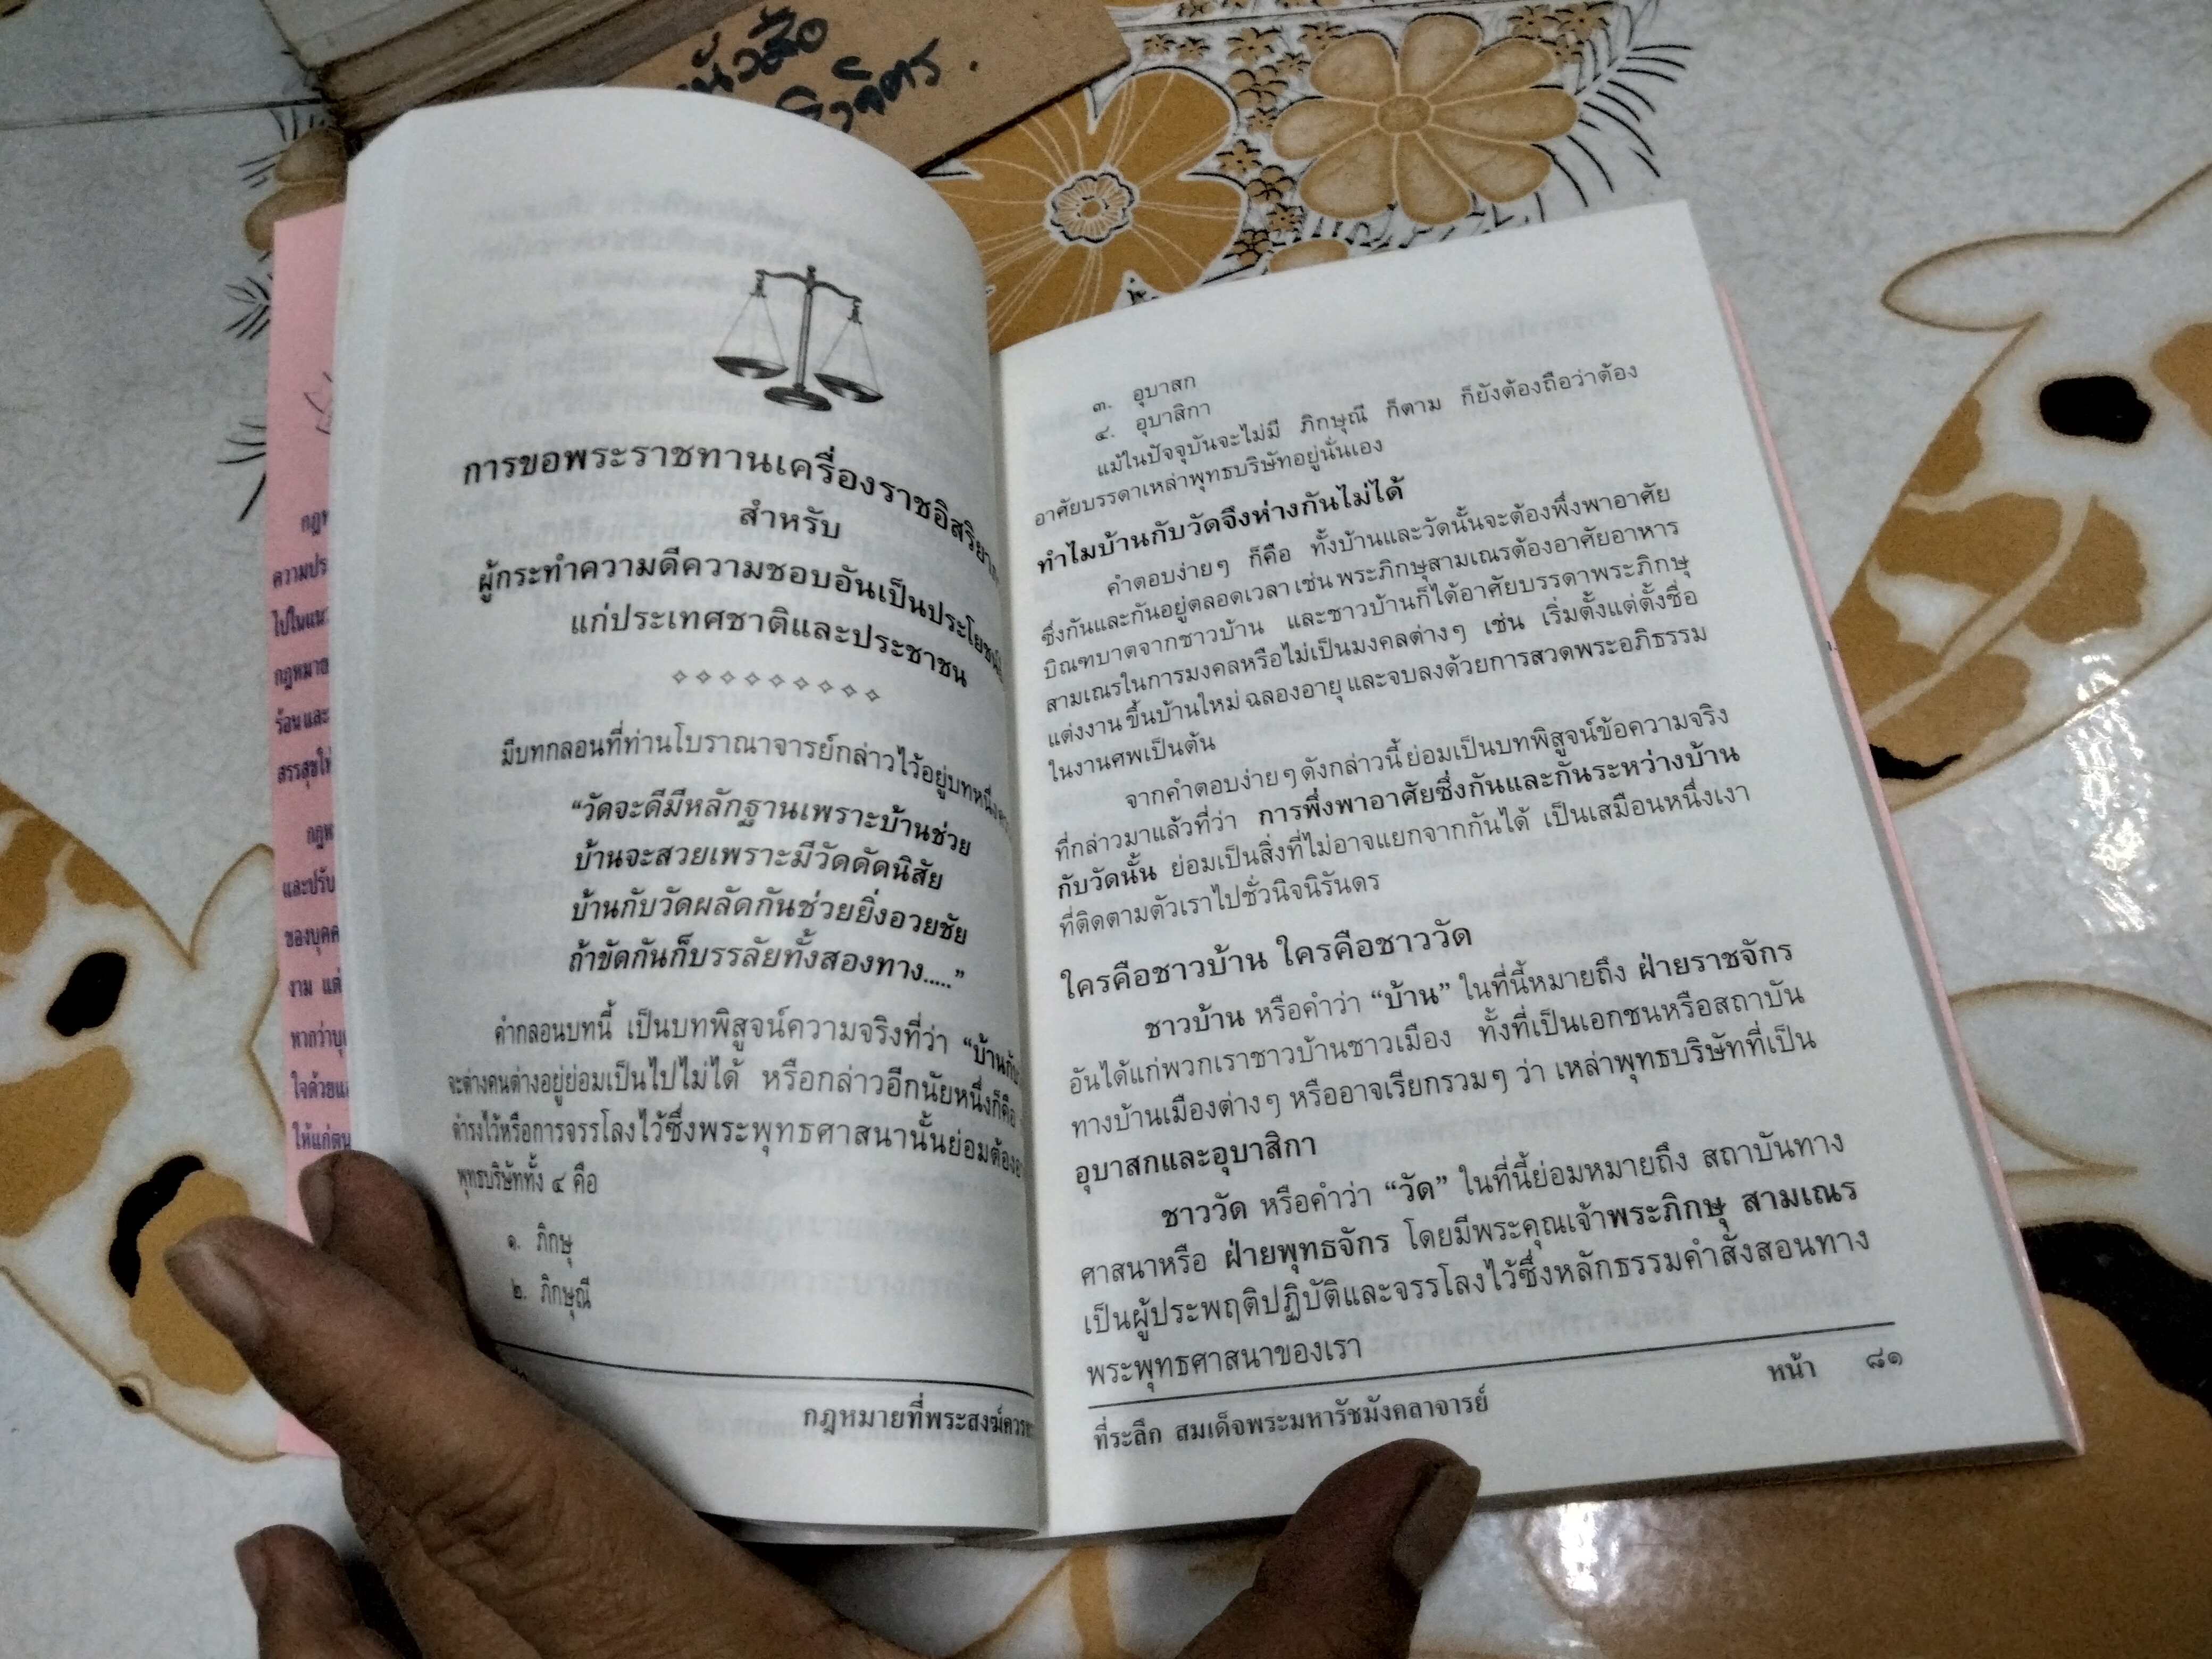 หนังสือ
การขอพระราชทานเครื่องราชอิสริยา
สำหรับ
ผู้กระทำความดีความชอบอันเป็นประโยชน์
แก่ประเทศชาติและประชาชน
มีบทกลอนที่ท่านโบราณาจารย์กล่าวไว้อยู่บทหนึ่ง
“วัดจะดีมีหลักฐานเพราะบ้านช่วย
บ้านจะสวยเพราะมีวัดดัดนิสัย
บ้านกับวัดผลัดกันช่วยยิ่งอวยชัย
ถ้าขัดกันก็บรรลัยทั้งสองทาง.....”
คำกลอนบทนี้ เป็นบทพิสูจน์ความจริงที่ว่า “บ้านกับ
จะต่างคนต่างอยู่ย่อมเป็นไปไม่ได้ หรือกล่าวอีกนัยหนึ่งก็คือ
ดำรงไว้หรือการจรรโลงไว้ซึ่งพระพุทธศาสนานั้นย่อมต้อง
พุทธบริษัททั้ง ๔ คือ
๑. ภิกษุ
๒. ภิกษุณี
กฎหมายที่พระสงฆ์ควร
กฎห
ความประ
ไปในแน
กฎหมาย
ร้อน และ
สรรสุขให้
กฎห
และปรับ
ของบุคค
งาม แต่
หากว่าบุ
ใจด้วยแ
ให้แก่ตน
๓. อุบาสก
๔. อุบาสิกา
แม้ในปัจจุบันจะไม่มี ภิกษุณี ก็ตาม ก็ยังต้องถือว่าต้อง
อาศัยบรรดาเหล่าพุทธบริษัทอยู่นั่นเอง
ทำไมบ้านกับวัดจึงห่างกันไม่ได้
คำตอบง่ายๆ ก็คือ ทั้งบ้านและวัดนั้นจะต้องพึ่งพาอาศัย
ซึ่งกันและกันอยู่ตลอดเวลา เช่น พระภิกษุสามเณรต้องอาศัยอาหาร
บิณฑบาตจากชาวบ้าน และชาวบ้านก็ได้อาศัยบรรดาพระภิกษุ
สามเณรในการมงคลหรือไม่เป็นมงคลต่างๆ เช่น เริ่มตั้งแต่ตั้งชื่อ
แต่งงาน ขึ้นบ้านใหม่ ฉลองอายุ และจบลงด้วยการสวดพระอภิธรรม
ในงานศพเป็นต้น
จากคำตอบง่ายๆ ดังกล่าวนี้ ย่อมเป็นบทพิสูจน์ข้อความจริง
ที่กล่าวมาแล้วที่ว่า การพึ่งพาอาศัยซึ่งกันและกันระหว่างบ้าน
กับวัดนั้น ย่อมเป็นสิ่งที่ไม่อาจแยกจากกันได้ เป็นเสมือนหนึ่งเงา
ที่ติดตามตัวเราไปชั่วนิจนิรันดร
ใครคือชาวบ้าน ใครคือชาววัด
ชาวบ้าน หรือคำว่า “บ้าน” ในที่นี้หมายถึง ฝ่ายราชจักร
อันได้แก่พวกเราชาวบ้านชาวเมือง ทั้งที่เป็นเอกชนหรือสถาบัน
ทางบ้านเมืองต่างๆ หรืออาจเรียกรวมๆ ว่า เหล่าพุทธบริษัทที่เป็น
อุบาสกและอุบาสิกา
ชาววัด หรือคำว่า “วัด” ในที่นี้ย่อมหมายถึง สถาบันทาง
ศาสนาหรือ ฝ่ายพุทธจักร โดยมีพระคุณเจ้าพระภิกษุ สามเณร
เป็นผู้ประพฤติปฏิบัติและจรรโลงไว้ซึ่งหลักธรรมคำสั่งสอนทาง
พระพุทธศาสนาของเรา
หน้า ๘๑
ที่ระลึก สมเด็จพระมหารัชมังคลาจารย์